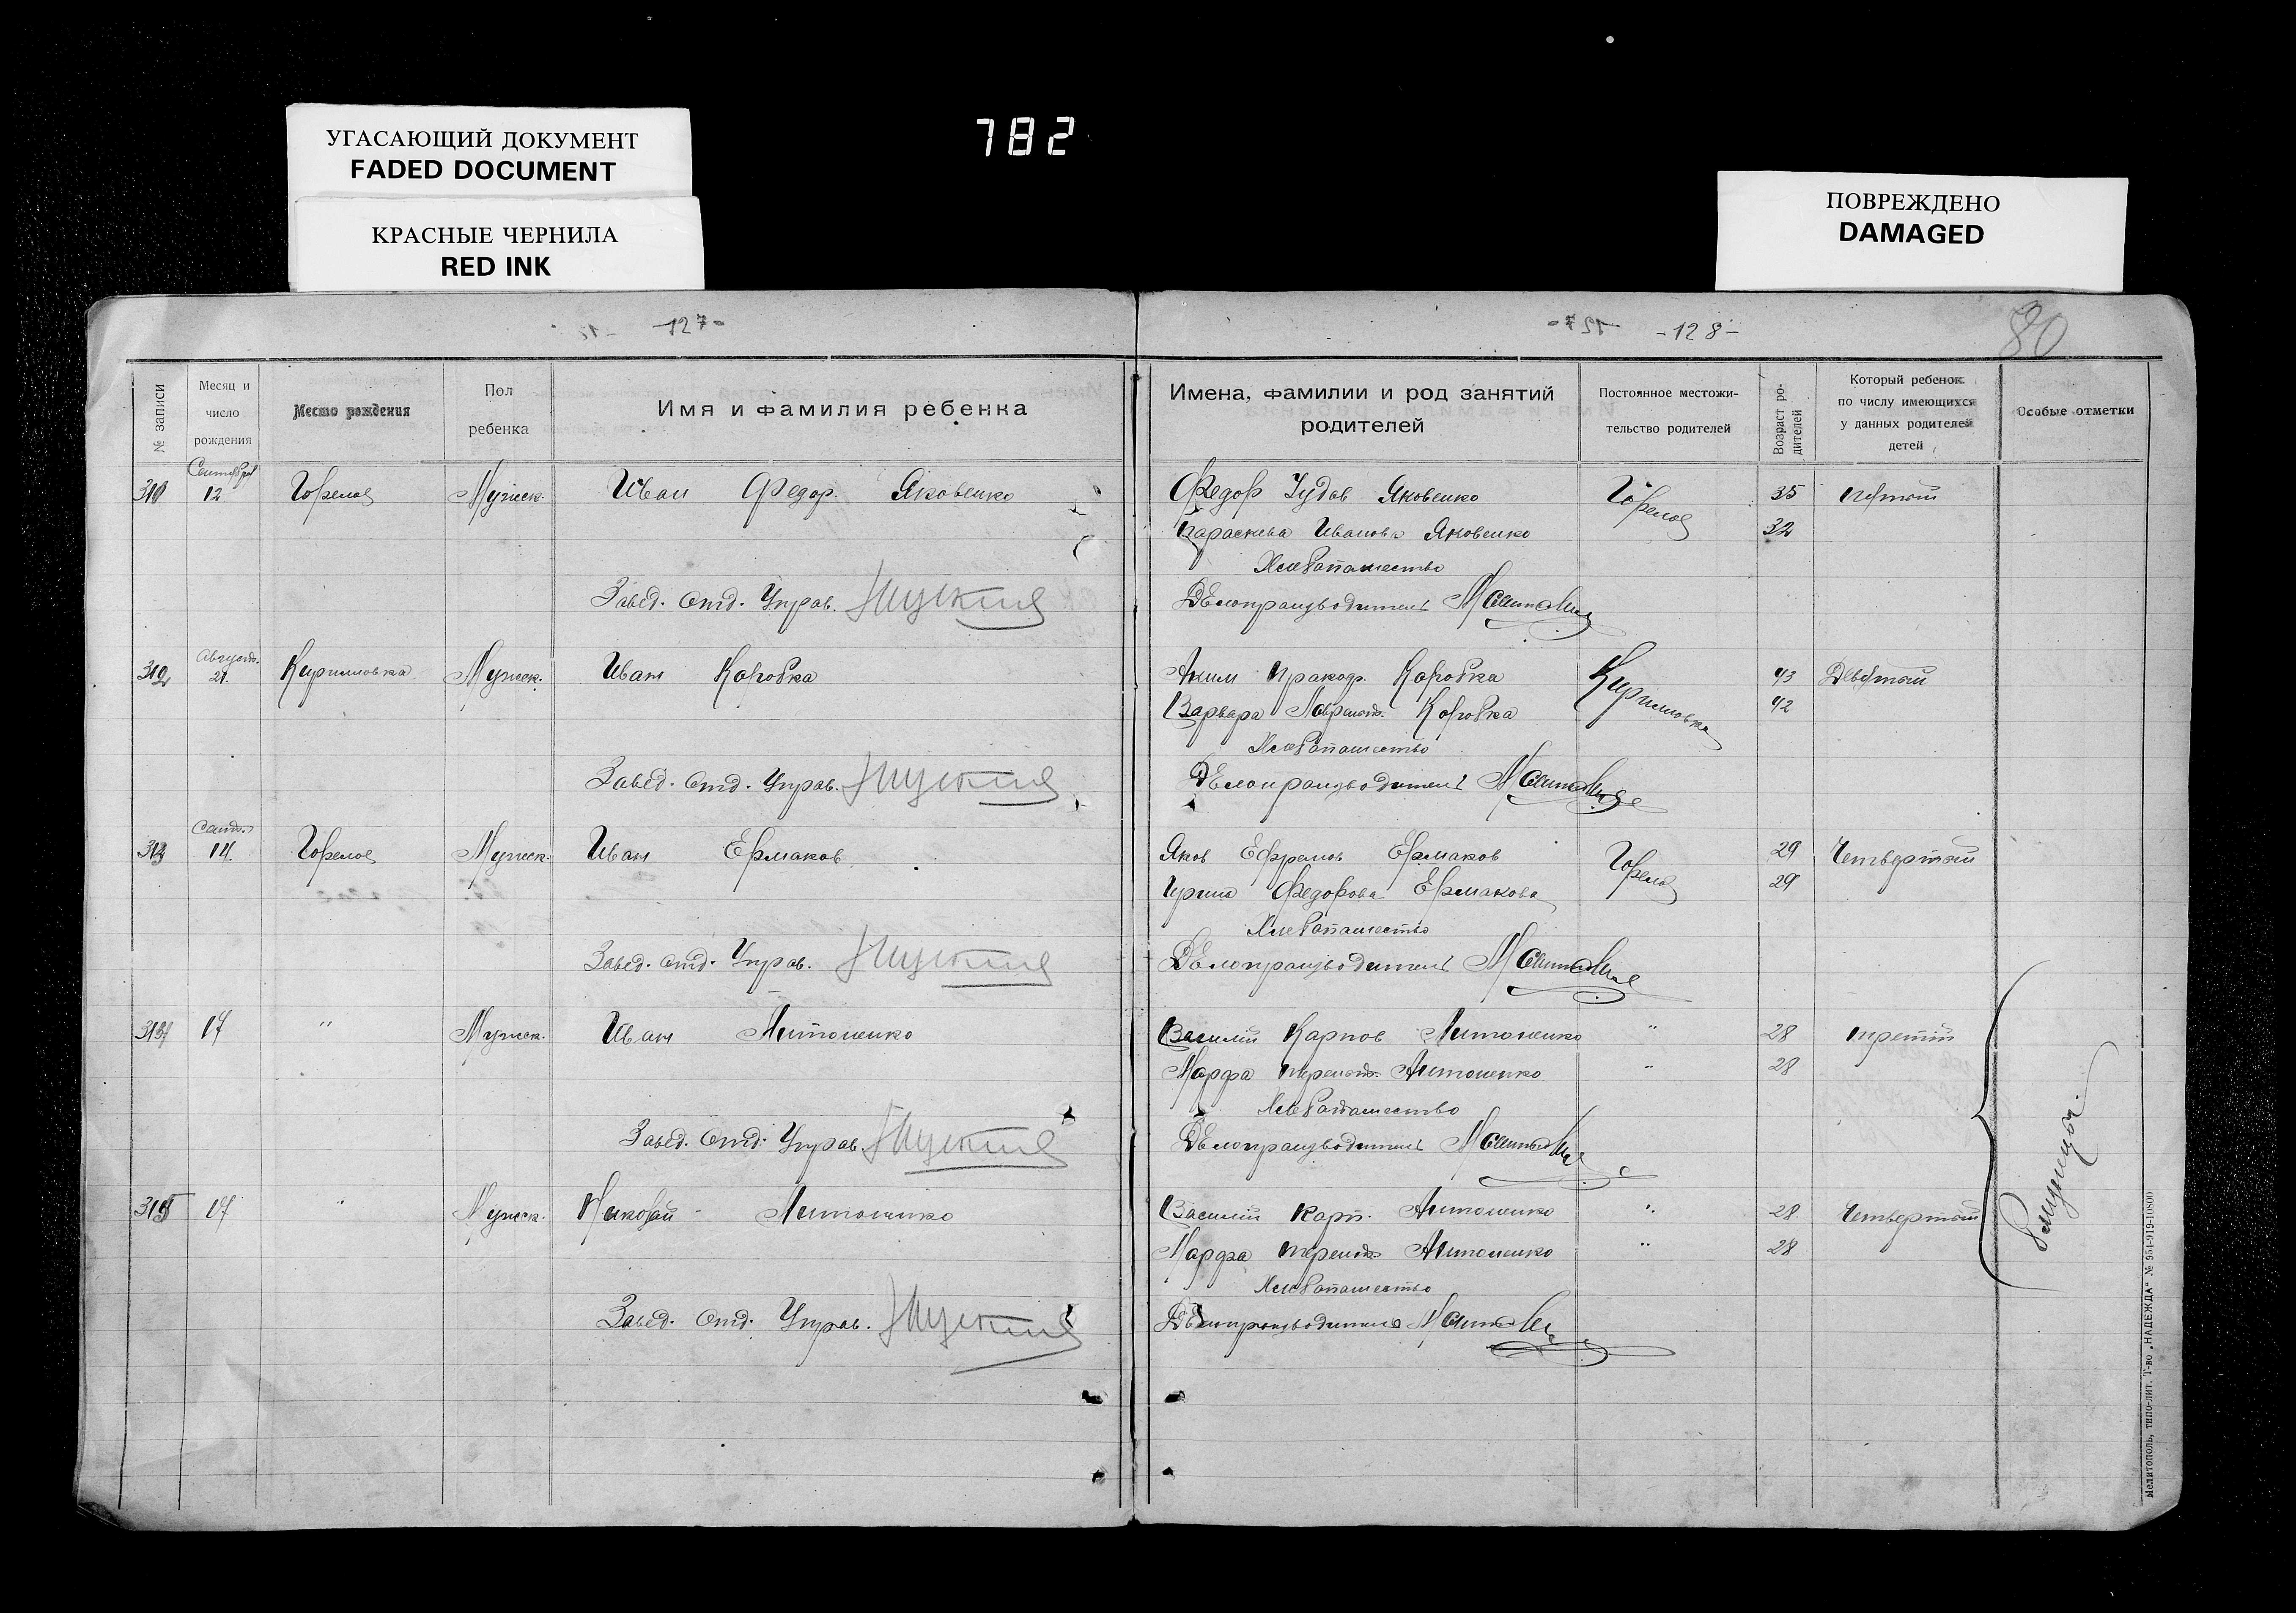 УГАСАЮЩИЙ ДОКУМЕНТ
FADED DOCUMENT
КРАСНЫЕ ЧЕРНИЛА
RED INK
782
ПОВРЕЖДЕНО
DAMAGED
-127-
-128-
80
№ записи
Месяц и число рождения
Место рождения
Пол ребенка
Имя и фамилия ребенка
Имена, фамилии и род занятий родителей
Постоянное местожительство родителей
Возраст родителей
Который ребенок по числу имеющихся у данных родителей детей
Особые отметки
Сентября 12 Горелое Мужск. Иван Федор. Яковенко
Федор Яковенко Горелое 35 пятый
Параскева Иванова Яковенко 32
Хлебопашество
Завед. Отд. Управ.
Делопроизводитель
312 Август. 21. Кирилловка Мужск. Иван Коробка
Аким Коробка Кирилловка 43 Девятый
Варвара Коробка 42
Хлебопашество
Завед. Отд. Управ.
Делопроизводитель
313 Сент. 14. Горелое Мужск. Иван Ермаков
Яков Ефремов Ермаков Горелое 29 Четвертый
Ирина Федорова Ермакова 29
Хлебопашество
Завед. Отд. Управ.
Делопроизводитель
314 17 " Мужск. Иван Антоненко
Василий Карпов Антоненко " 28 третий
Марфа Терент. Антоненко " 28
Хлебопашество
Завед. Отд. Управ.
Делопроизводитель
315 17 " Мужск. Николай Антоненко
Василий Карп. Антоненко " 28 Четвертый
Марфа Терент. Антоненко " 28
Хлебопашество
Завед. Отд. Управ.
Делопроизводитель
Близнецы.
Мелитополь, типо-лит. Т-во „НАДЕЖДА" № 954-919-10800